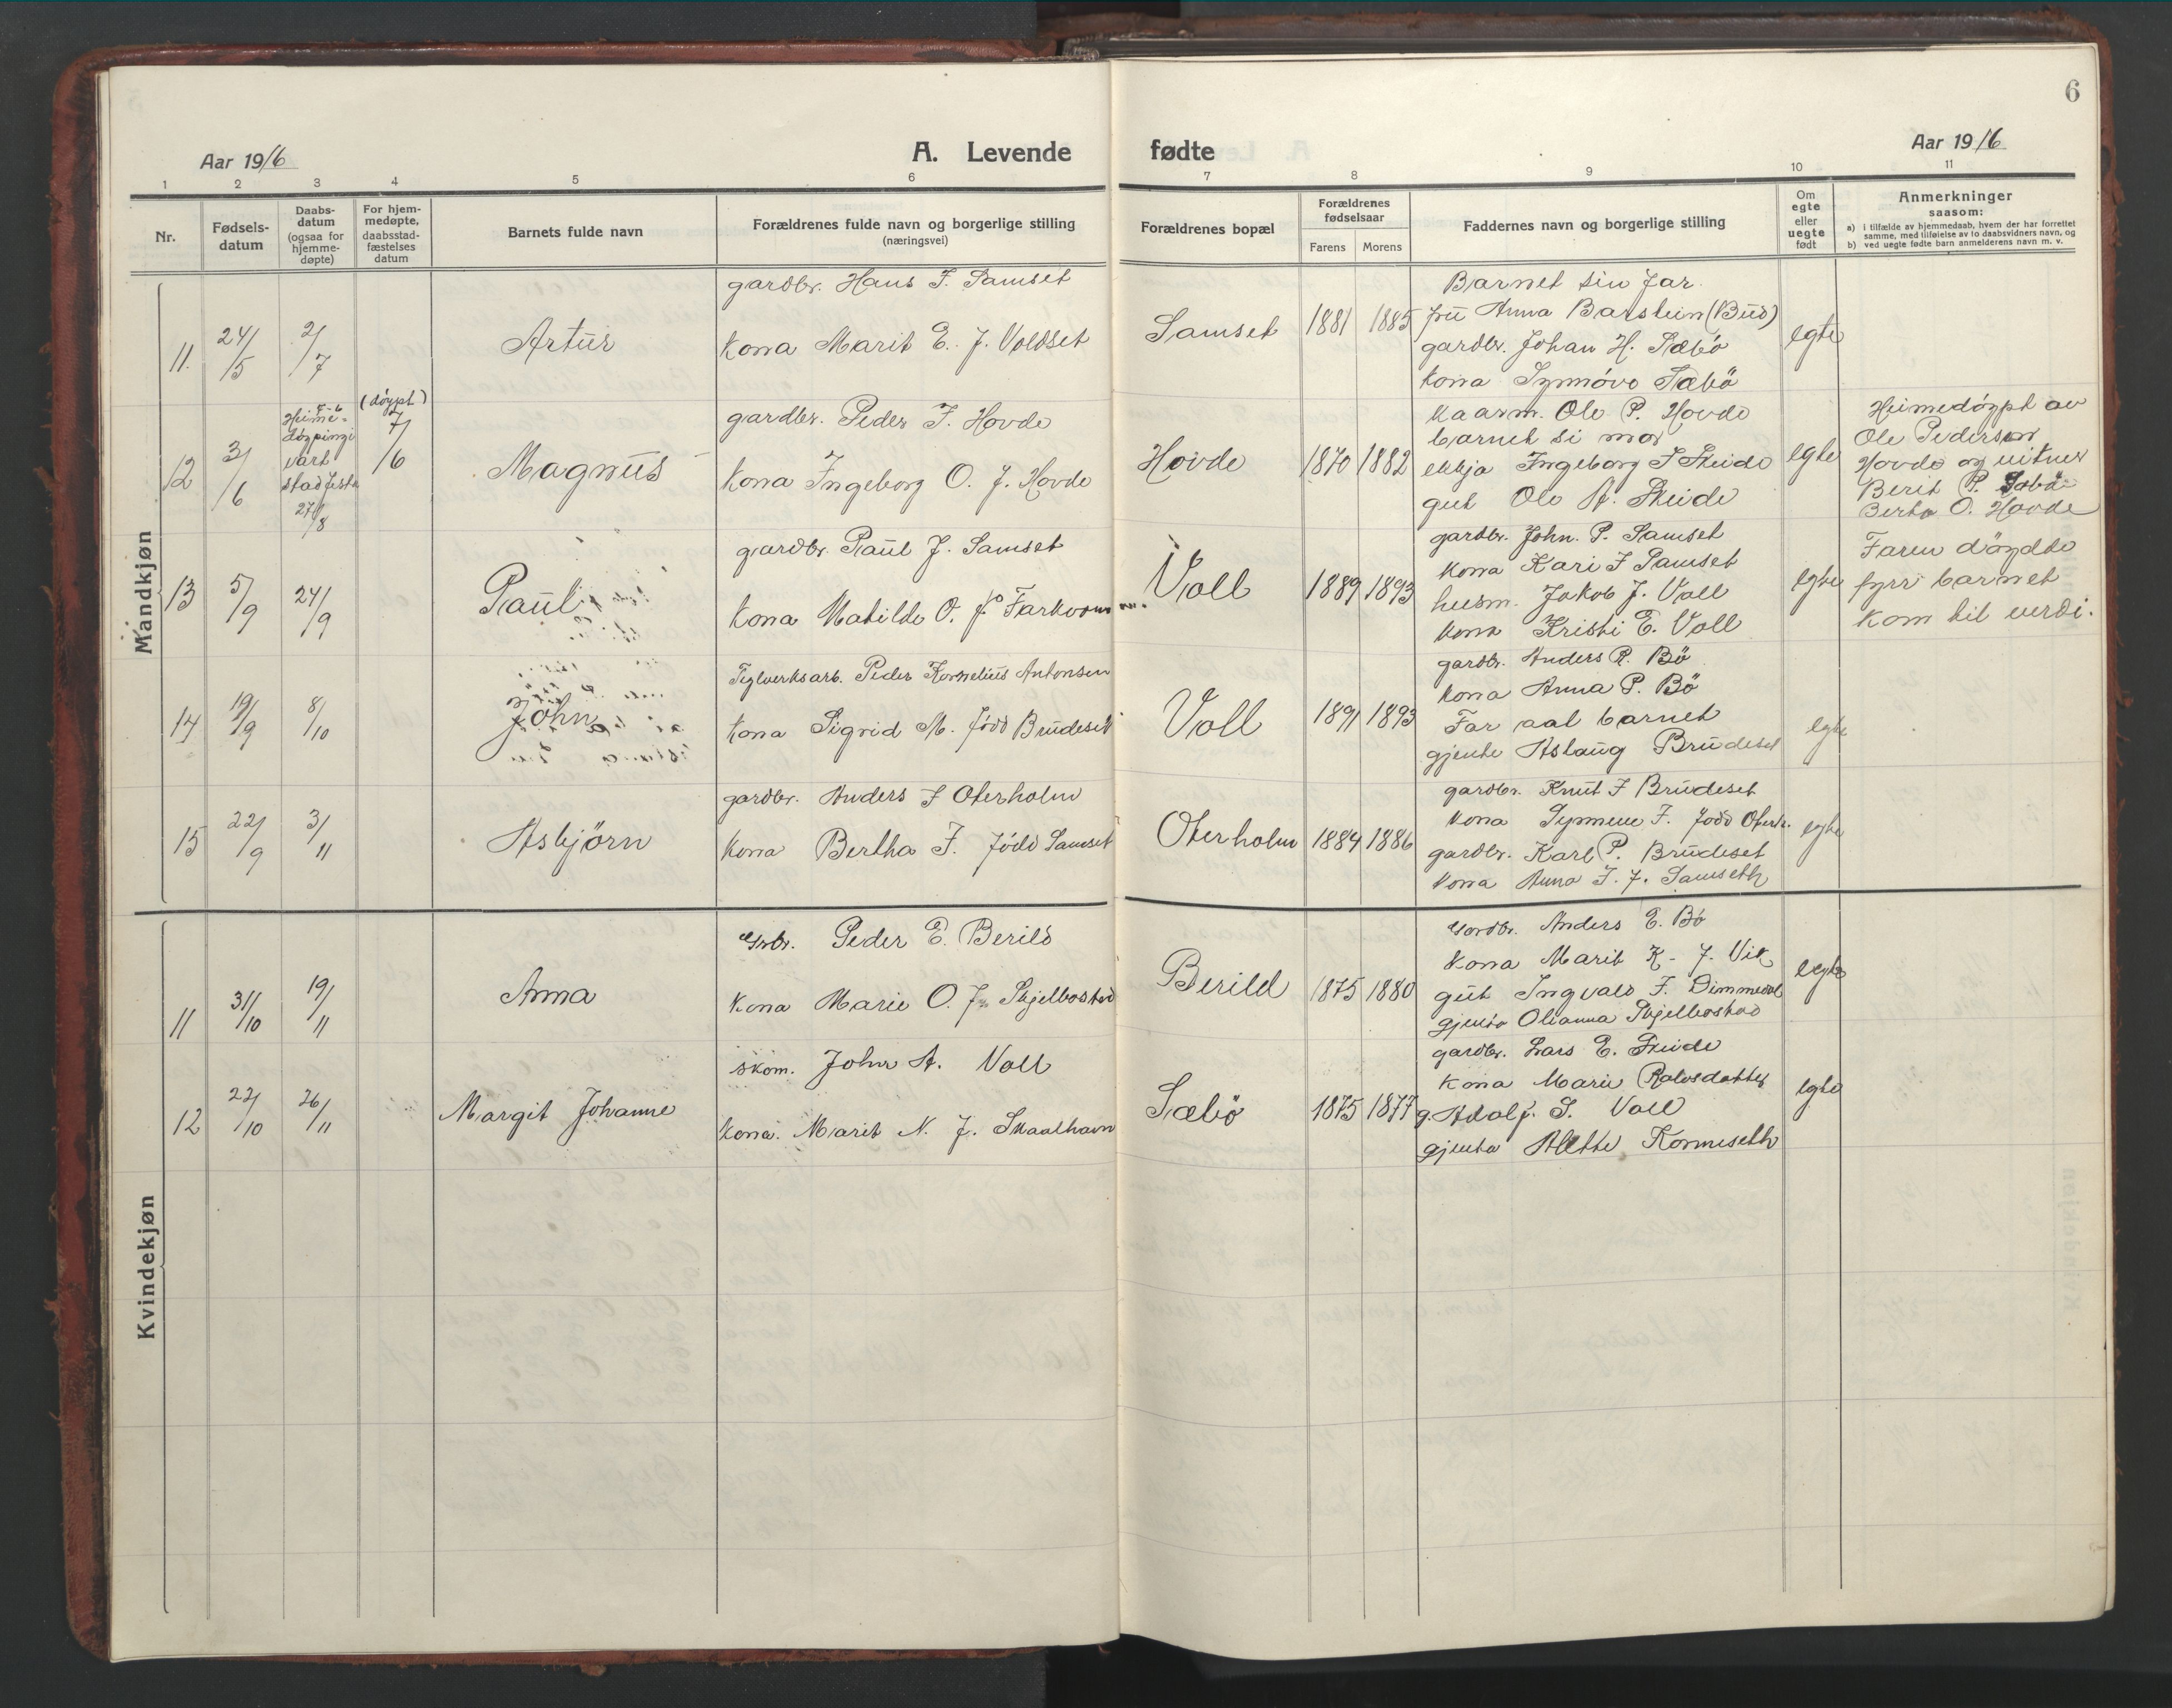 6
Aar 1916
A. Levende fødte
Aar 1916
1 2 3 4 5 6 7 8 9 10 11
Nr.
Fødsels-
datum
Daabs-
datum
(ogsaa for
hjemme-
døpte)
For hjem-
medøpte,
daabsstad-
fæstelses
datum
Barnets fulde navn
Forældrenes fulde navn og borgerlige stilling
(næringsvei)
Forældrenes bopæl
Forældrenes
fødselsaar
Farens Morens
Faddernes navn og borgerlige stilling
Om
egte
eller
uegte
født
Anmerkninger
saasom:
a) i tilfælde av hjemmedaab, hvem der har forrettet
samme, med tilføielse av to daabsvidners navn, og
b) ved uegte fødte barn anmelderens navn m. v.
Mandkjøn
11. 24/5 2/7
Artur
gardbr. Hans J. Samset
kona Marit E. f. Voldset
Samset 1881 1885
Barnet sin far
fru Anna Barstein (Bud)
gardbr. Johan H. Sæbö
kona Synnóve Sæbö
egte
12 3/6
Heime-
döypingi
vart
stadfest
27/8
(döypt)
7/6
Magnus
gardbr. Peder J. Hovde
kona Ingeborg O. f. Hovde
Hovde 1870 1882
kaarm. Ole P. Hovde
barnet si mor
ekkja Ingeborg J Skeide
gut Ole A. Skeide
egte
Heimedöypt av
Ole Pederson
Hovde og vitner
Berit P. Sæbö
Berta O. Hovde
13 5/9 24/9
Paul
gardbr. Paul J. Samset
kona Matilde O. f. Farkvam
Voll 1889 1893
gardbr. John. P. Samset
kona Kari J Samset
husm. Jakob J. Voll
kona Kristi E. Voll
egte
Faren döydde
fyrr barnet
kom til verdi.
14 19/9 8/10
John
Teglverksarb. Peder Kornelius Antonsen
kona Sigrid M. född Brudeset
Voll 1891 1893
gardbr. Anders R. Bö
kona Anna P. Bö
Far aal barnet
gjente Aslaug Brudeset
egte
15 22/9 3/11
Asbjørn
gardbr. Anders J Oterholm
kona Bertha J. född Samset
Oterholm 1884 1886
gardbr. Knut J Brudeset
kona Synneve J. född Oterh.
gardbr. Karl P. Brudeset
kona Anna J. f. Samseth
egte
Kvindekjøn
11 31/10 19/11
Anna
Grbr. Peder E. Berild
kona Marie O. f. Skjelbostad
Berild 1875 1880
Gardbr. Anders E. Bö
kona Marit K. f. Vik
gut Ingvald J. Dimmedal
gjenta Olianna Skjelbostad
egte
12 22/10 26/11
Margit Johanne
skom. John A. Voll
kona. Marit N. f. Skaalhavn
Sæbö 1875 1877
gardbr. Lars E. Skeide
kona Marie
g. Adolf. S. Voll
gjenta Alette Kornseth
egte